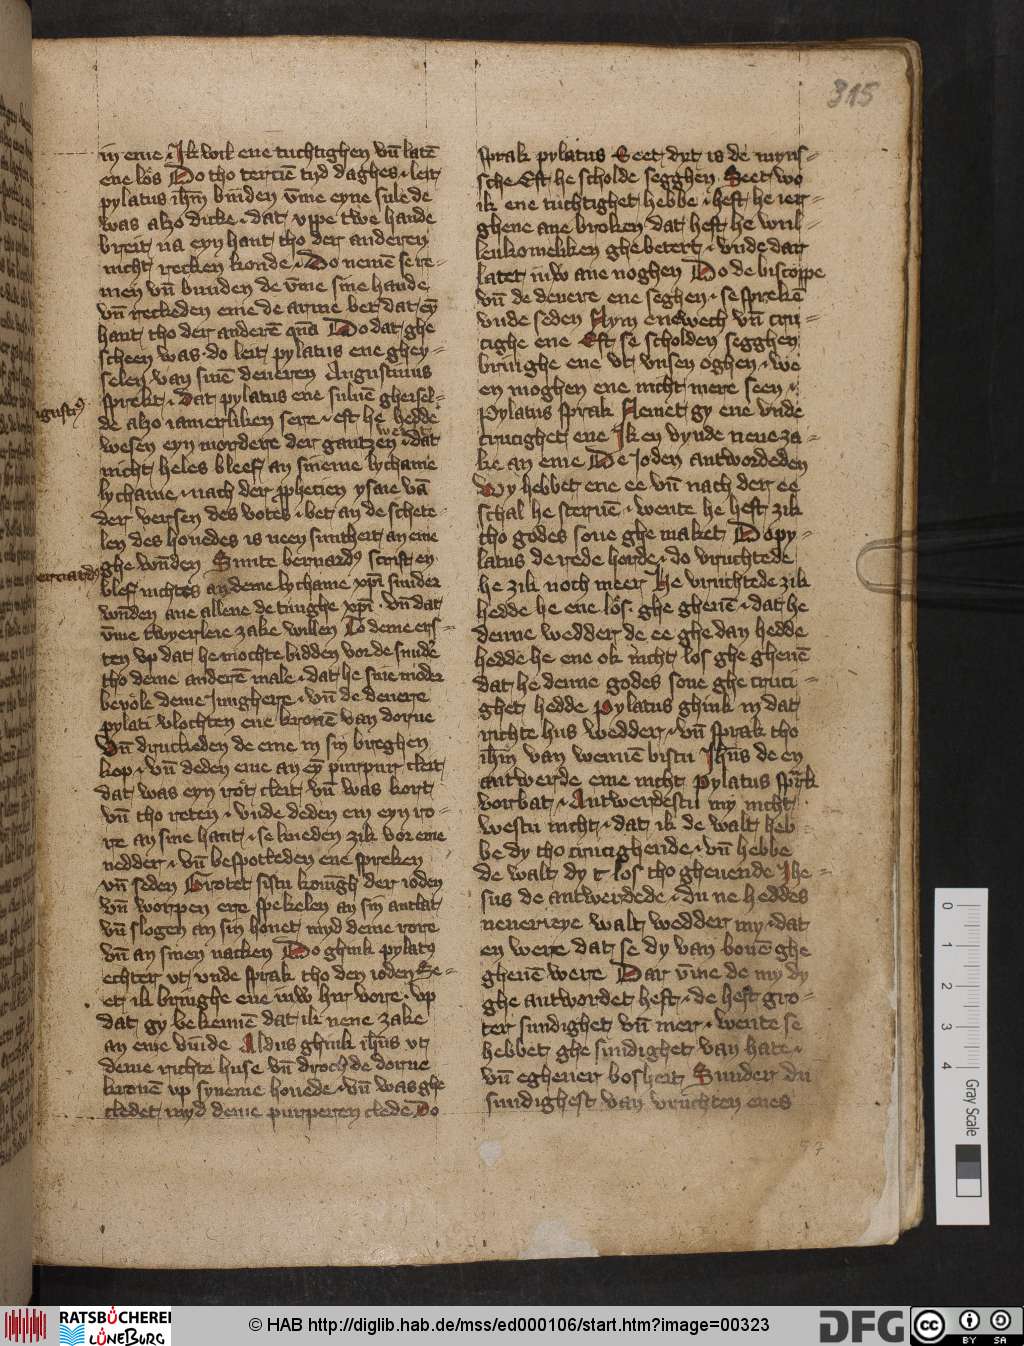 315
in eme Jk wil ene tuchtighen vn̄ latē
ene lôs Do tho terciē tijd daghes leit
pylatus ihm̄ binden v̄me eyne sule de
was alzo dicke dat vppe twe hande
breit na eyn hant tho der anderen
nicht recken konde Do nemē se re-
men vn̄ bunden de v̄me sine hande
vn̄ reckeden eme de arme bet dat eȳ
hant tho der anderē quā Do dat ghe
scheen was do leit pylatus ene ghey-
selen van sinē deneren Augustinus
sprekt dat pylatus ene suluē gheisel-
de alzo iamerliken sere eft he hedde
wesen eyn mordere der gantzen werlt dat
nicht heles bleef an sineme lychame
lychame nach der prophecien ysaie vā
der versen des votes bet an de schete-
len des houedes is neen suntheit an eme
ghe wn̄den Sunte bernardꝰ scrift en
blef nichtes an deme lychame xp̄i sunder
wn̄den ane allene de tunghe xp̄i vn̄ dat
v̄me twyerleie zake willen To deme ers-
ten vp dat he mochte bidden vor de sunde
tho deme anderē male dat he sine moder
beuôle deme Jungherē vn̄ de denere
pylati vlochten ene kronē van dorne
Vn̄ druckeden de eme in sin breghen
kop vn̄ deden eme an eȳ purpur cleit
dat was eyn rot cleit vn̄ was kort
vn̄ tho reten vnde deden em eyn ro-
re an sine hant se knieden zik vor eme
nedder vn̄ bespotteden ene spreken
vn̄ seden Grotet sistu konīgh der ioden
vn̄ worpen ere spekelen an sin antlat
vn̄ slogen an sin houet myd deme rore
vn̄ an sinen nacken Do ghink pylatꝰ
echter vt vnde sprak tho den ioden Se-
et ik bringhe ene iuw hir vore vp
dat gy bekennē dat ik nene zake
an eme vinde Aldus ghink ihūs vt
deme richte huse vn̄ droch de dorne
kronē vp syneme houede vn̄ was ghe
cledet myd deme purperen cledē Do
sprak pylatus Seet dyt is de myns-
sche Eft he scholde segghen Seet wo
ik ene tuchtighet hebbe heft he ier-
ghene ane broken dat heft he wil-
lenkomeliken ghe betert vnde dar
latet iuw ane noghen Do de biscoppe
vn̄ de denere ene seghen se sprekē
vnde seden Nym enewech vn̄ cru-
cighe ene Eft se scholden segghen
bringhe ene vt vnsen oghen we
en moghen ene nicht mere seen
Pylatus sprak Nemet gy ene vnde
crucighet ene Jk en vynde nene za-
ke an eme De Joden antwordeden
Wy hebbet ene ee vn̄ nach der ee
schal he steruē wente he heft zik
tho godes sone ghe maket Do py-
latus de rede horde do vruchtede
he zik noch meer He vruchtede zik
hedde he ene lôs ghe gheuē dat he
denne wedder de ee ghe dan hedde
hedde he ene ok nicht los ghe gheuē
dat he denne godes sone ghe cruci-
ghet hedde Pylatus ghink in dat
richte hus wedder vn̄ sprak tho
ihm̄ van wennē bistu Jhūs de en
antwerde eme nicht Pylatus sprak
vorbat Antwerdestu my nicht
westu nicht dat ik de walt heb
be dy tho crucighende vn̄ hebbe
de walt dy los tho gheuende Jhe-
sus de antwerdede du ne heddes
nenerleye walt wedder my dat
en were dat se dy van bouē ghe
gheuē were Dar v̄me de my dy
ghe antwordet heft de heft gro-
ter sundighet vn̄ mer wente se
hebbet ghe sundighet van hate
vn̄ eghener bosheit Sunder du
sundighest van vruchten enes
0 1 2 3 4
Gray Scale
RATSBÜCHEREI
LÜNEBURG
© HAB http://diglib.hab.de/mss/ed000106/start.htm?image=00323
DFG
cc BY SA